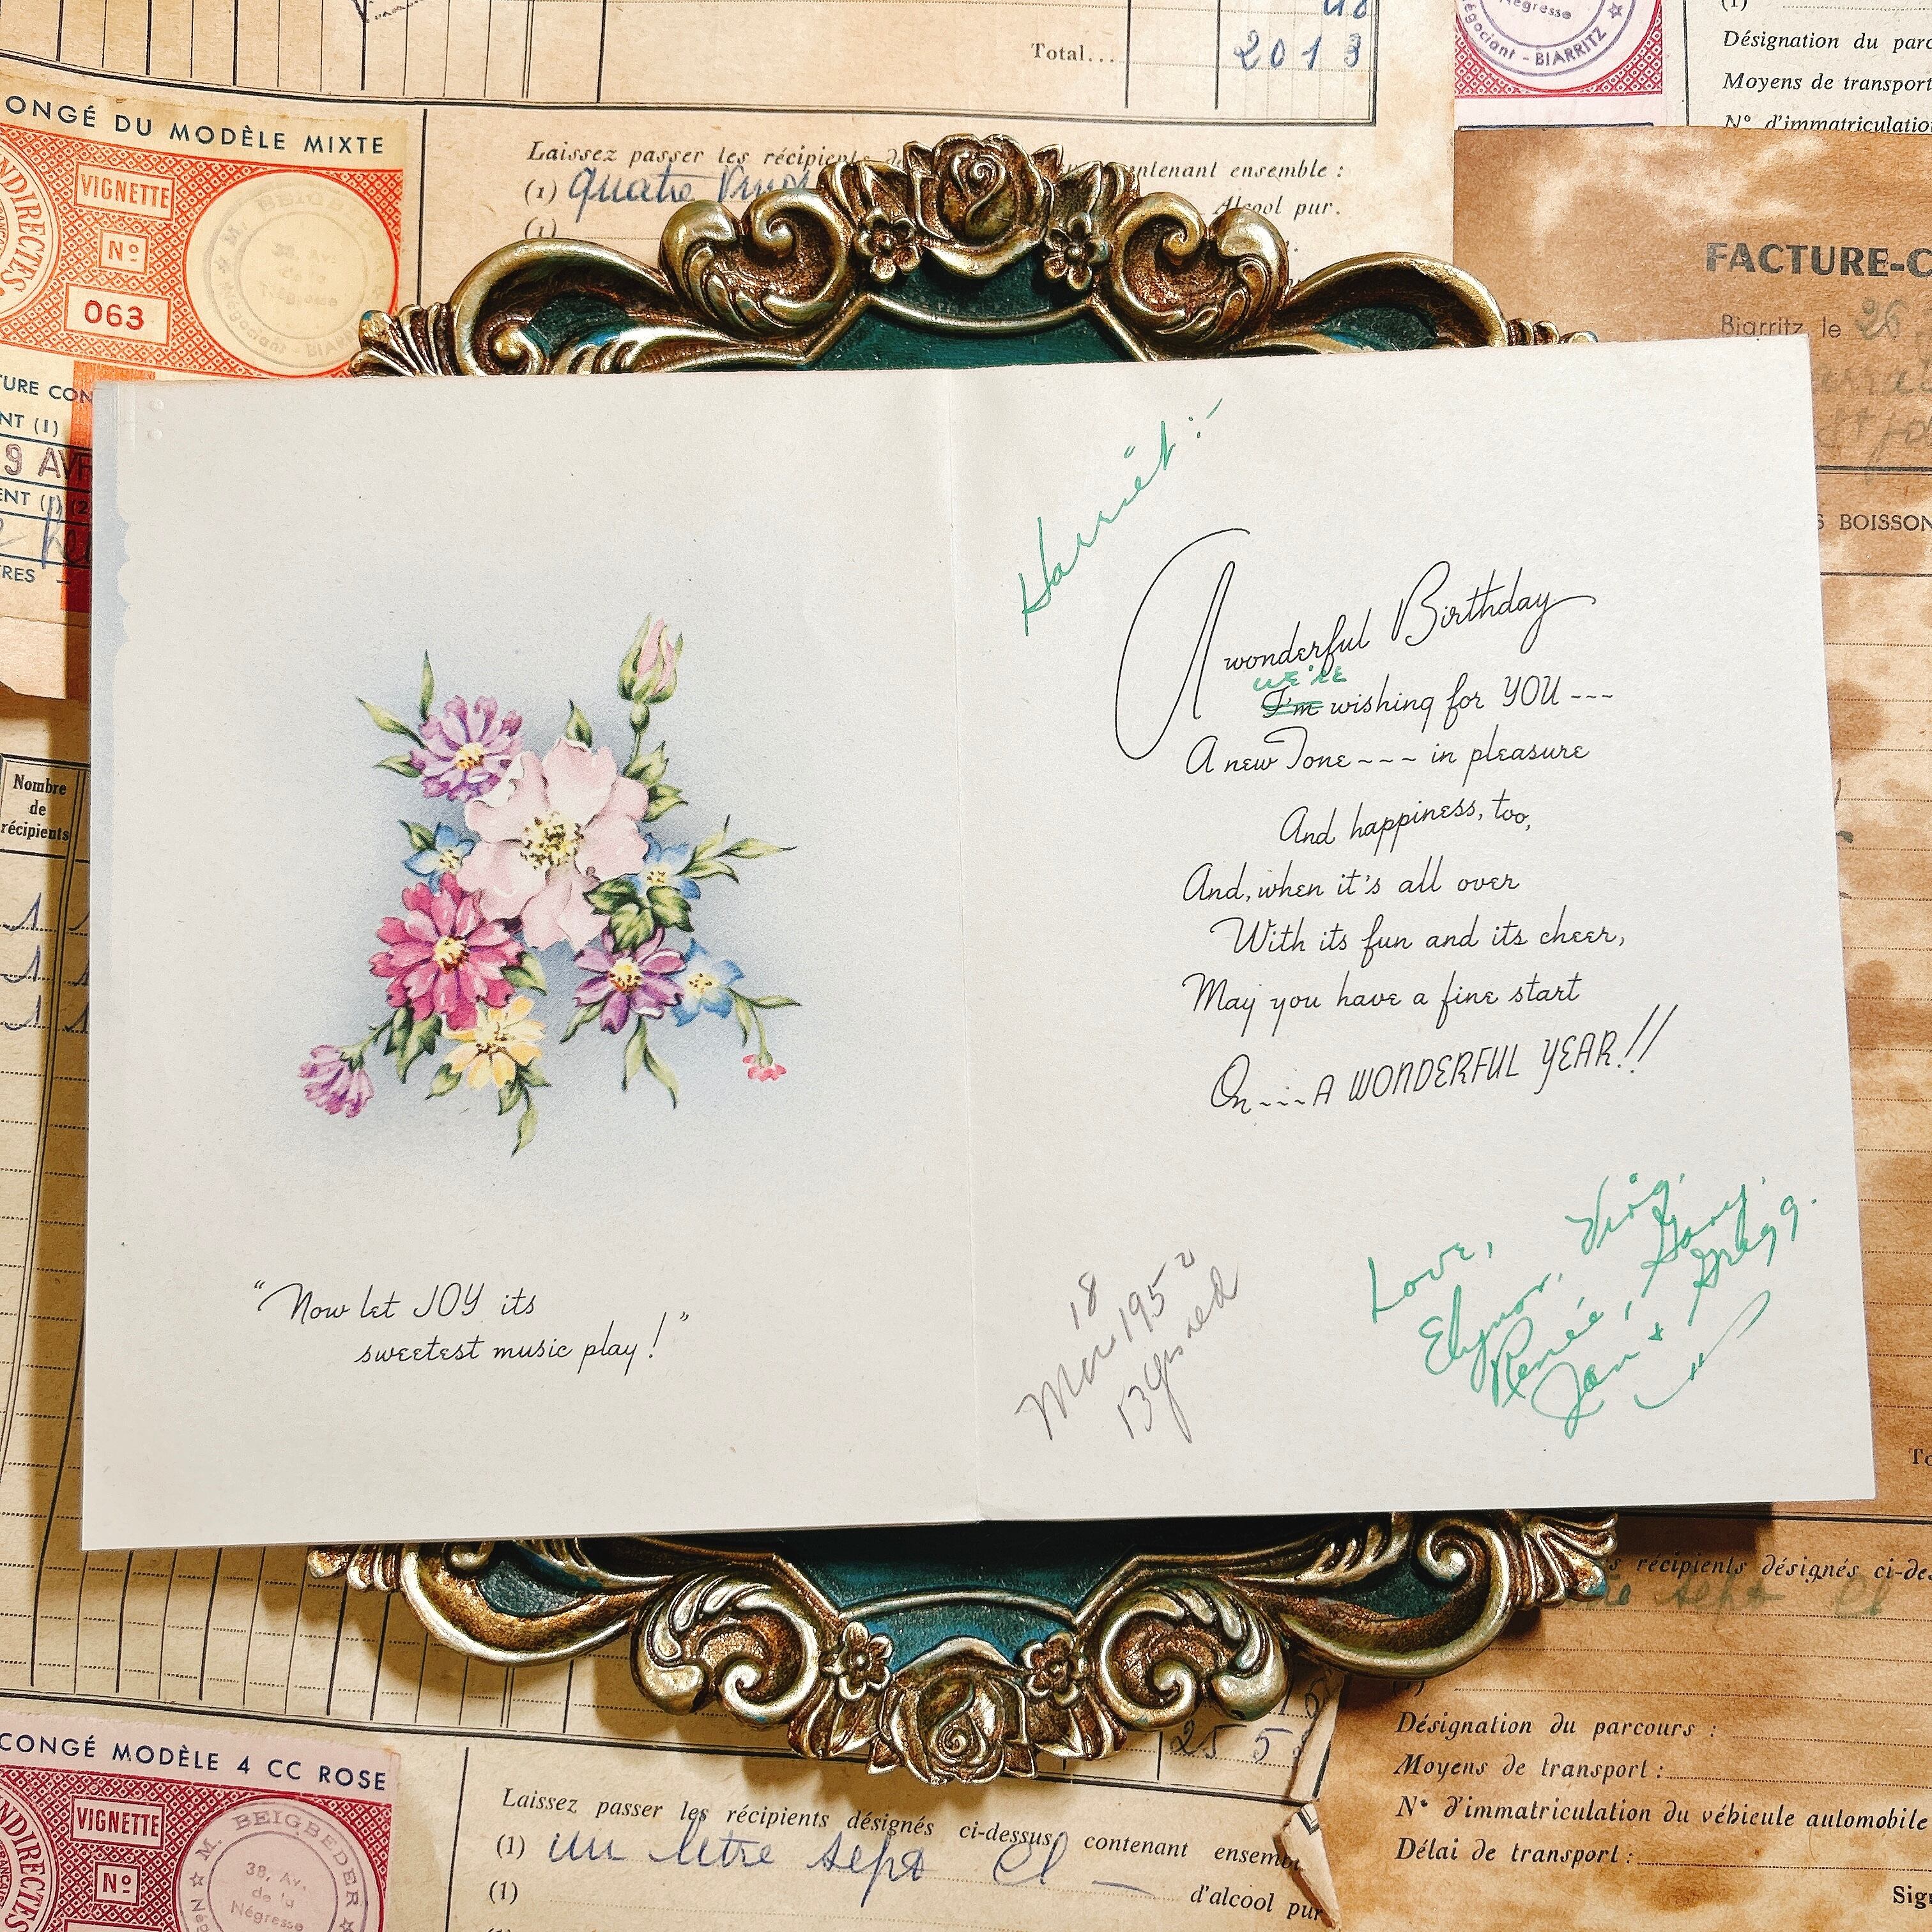 Total...
2013
ONGÉ DU MODÈLE MIXTE
NDIRECTES
VIGNETTE
Nº
063
Laissez passer les récipients
(1) quatre
entenant ensemble :
(1)
Alcool pur.
Négresse
Négociant - BIARRITZ
(1)
Désignation du parc
Moyens de transport
Nº d'immatriculatio
FACTURE-C
Biarritz, le 26
BOISSON
TURE CON
NT (1)
9 AV
ENT (1) (2
TRES -
Nombre
de
récipients
1
1
1
Harriet:-
A wonderful Birthday
WE'RE
I'm wishing for YOU ---
A new Tone --- in pleasure
And happiness, too,
And, when it's all over
With its fun and its cheer,
May you have a fine start
On --- A WONDERFUL YEAR!!
"Now let JOY its
sweetest music play!"
18
Mar 1952
Love, Virg,
Elynor, Gary,
Renée, Gregg.
Jan &
s récipients désignés ci-des
sept
255
CONGÉ MODÈLE 4 CC ROSE
NDIRECTES
VIGNETTE
Nº
M. BEIGBEDER
38, Av.
de la
Négresse
Laissez passer les récipients désignés ci-dessus, contenant ensemb
(1) un litre sept cl —
(1)
d'alcool pur
Désignation du parcours :
Moyens de transport :
N° d'immatriculation du véhicule automobile
Délai de transport :
Sign